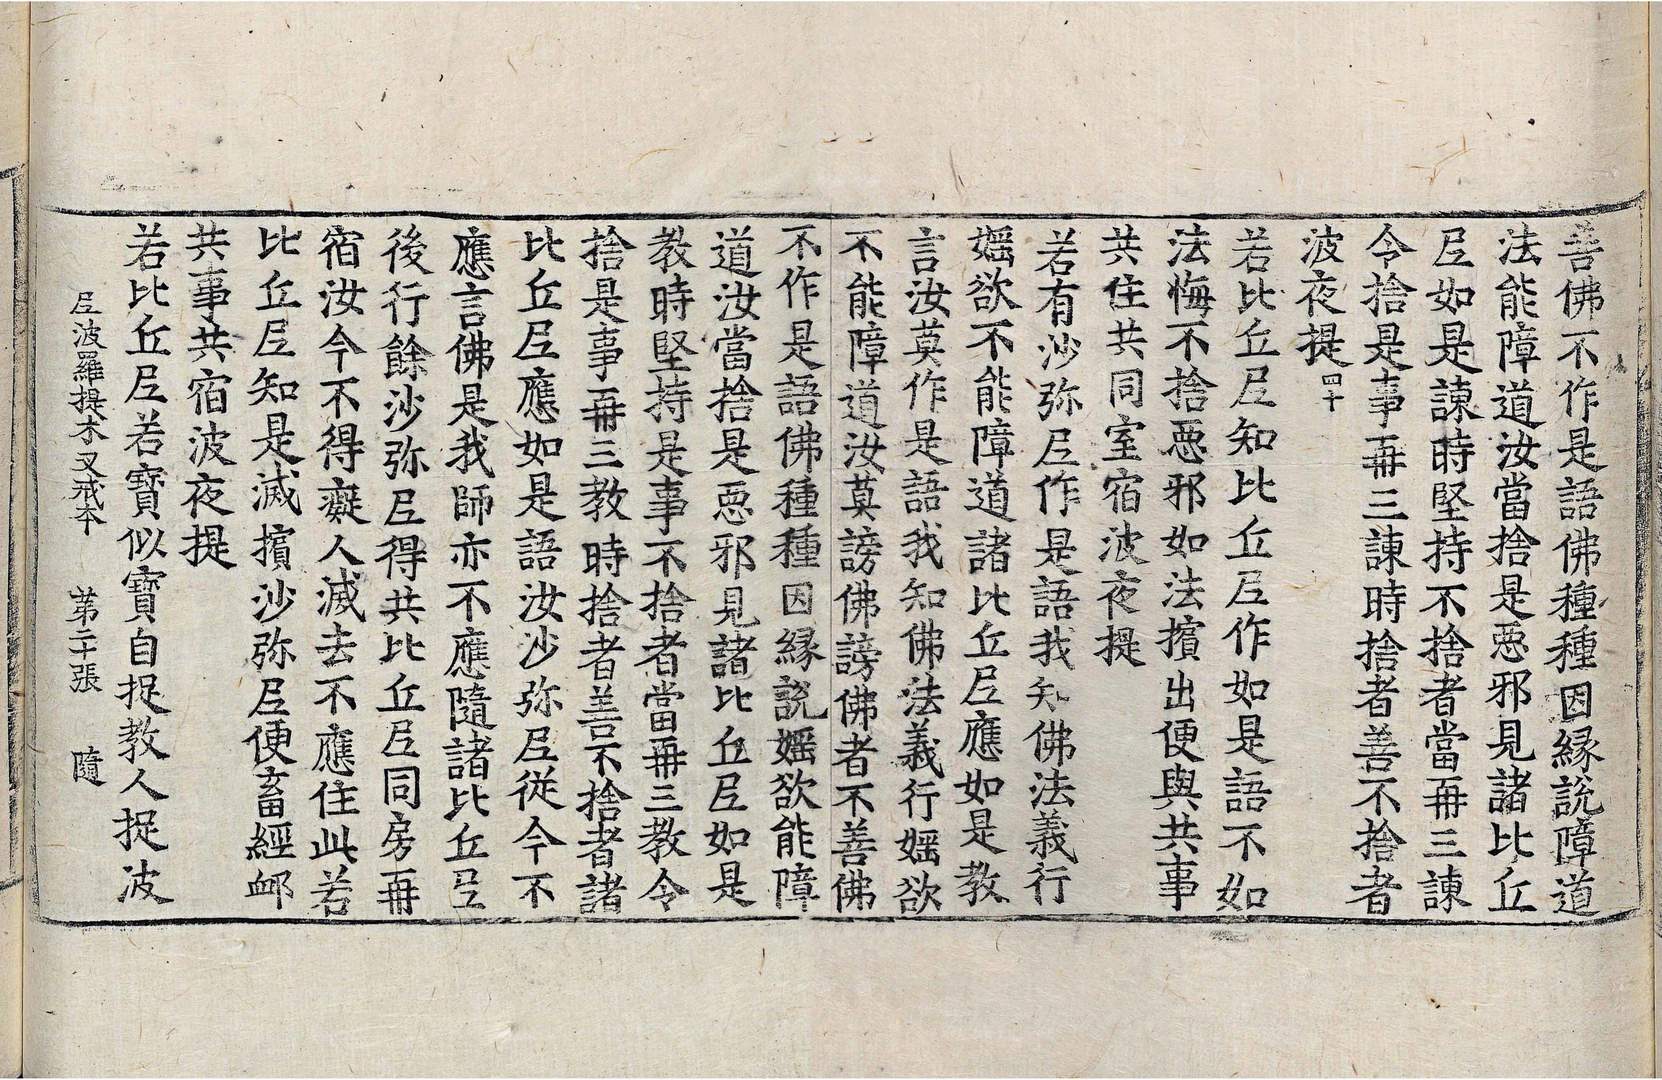 善佛不作是語佛種種因緣説障道
法能障道汝當捨是惡邪見諸比丘
尼如是諫時堅持不捨者當再三諫
令捨是事再三諫時捨者善不捨者
波夜提四十
若比丘尼知比丘尼作如是語不如
法悔不捨惡邪如法擯出便與共事
共住共同室宿波夜提
若有沙弥尼作是語我知佛法義行
婬欲不能障道諸比丘尼應如是教
言汝莫作是語我知佛法義行婬欲
不能障道汝莫謗佛謗佛者不善佛
不作是語佛種種因緣説婬欲能障
道汝當捨是惡邪見諸比丘尼如是
教時堅持是事不捨者當再三教令
捨是事再三教時捨者善不捨者諸
比丘尼應如是語汝沙弥尼従今不
應言佛是我師亦不應隨諸比丘尼
後行餘沙弥尼得共比丘尼同房再
宿汝今不得癡人滅去不應住此若
比丘尼知是滅擯沙弥尼便畜經卹
共事共宿波夜提
若比丘尼若寶似寶自捉教人捉波
尼波羅提木叉戒本 第二十張 隨